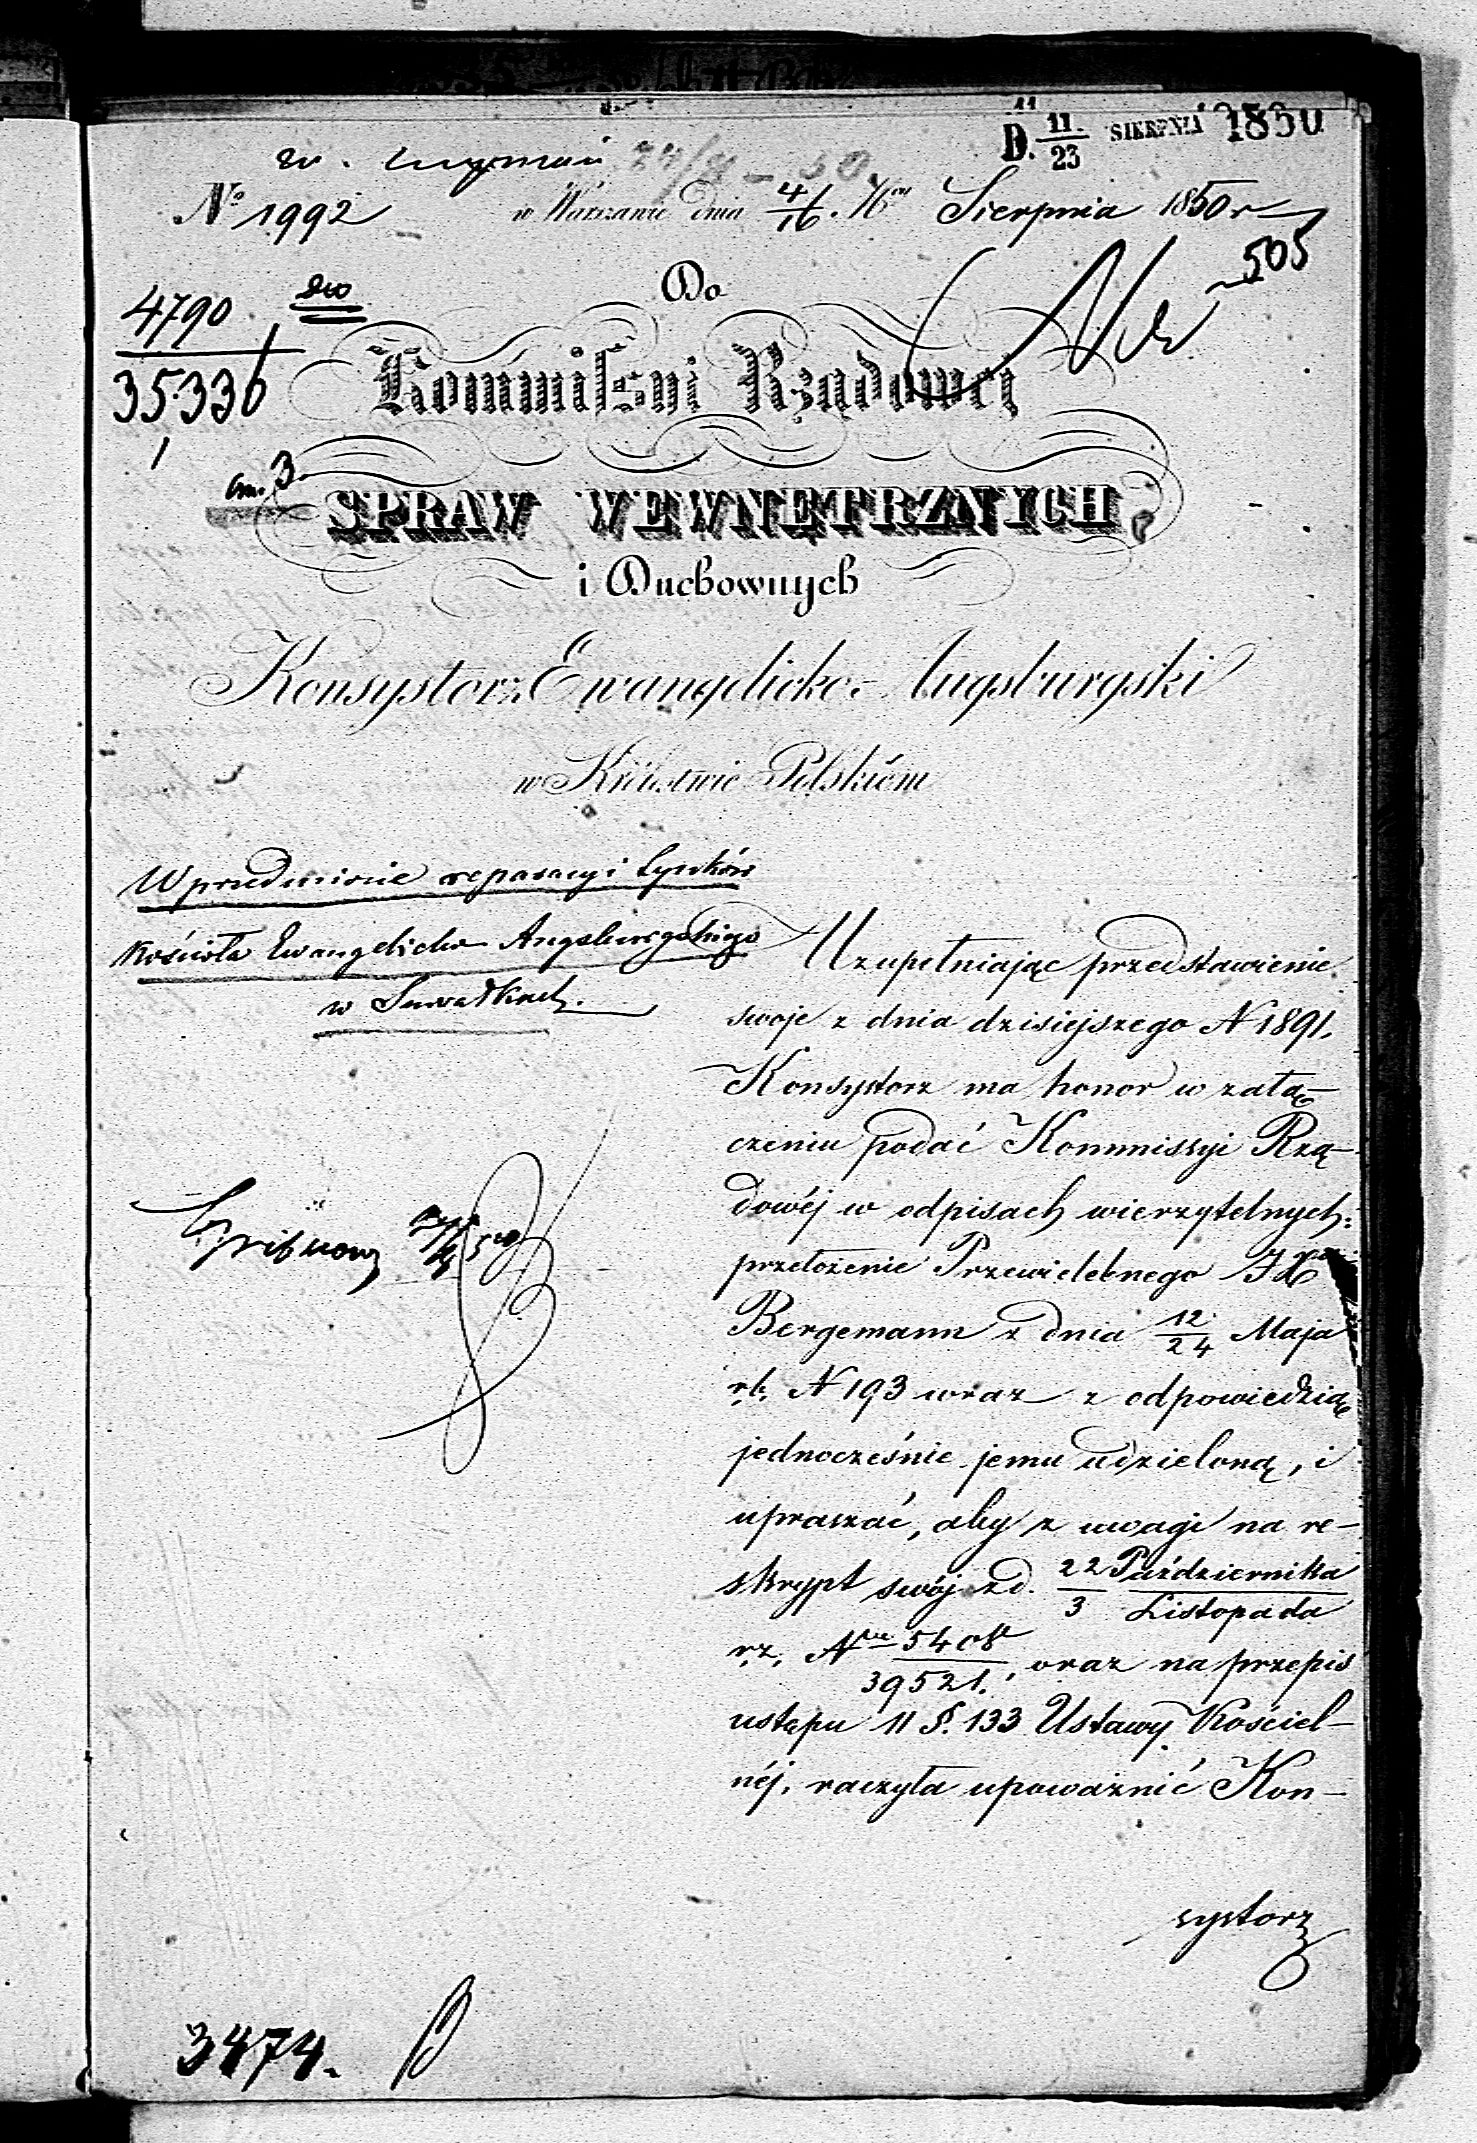 D. 11/23 SIERPNIA 1850
№ 1992 w Warszawie dnia 4/16 Sierpnia 1850 r
505
4790
35.336
Do
Kommissyi Rządowej
SPRAW WEWNĘTRZNYCH
i Duchownych
Konsystorz Ewangelicko-Augsburgski
w Królestwie Polskiém
W przedmiocie reparacyi tynków
Kościoła Ewangelicko Augsburgskiego
w Suwałkach.
Uzupełniając przedstawienie
swoje z dnia dzisiejszego N 1891,
Konsystorz ma honor w załą-
czeniu podać Kommissyi Rzą-
dowéj w odpisach wierzytelnych:
przełożenie Przewielebnego JX
Bergemann z dnia 12/24 Maja
r.b. N 193 wraz z odpowiedzią
jednocześnie jemu udzieloną, i
upraszać, aby z uwagi na re-
skrypt swój z d. 22 Października/3 Listopada
r.z. N 5408/39521., oraz na przepis
ustępu 11 §. 133 Ustawy Kościel-
néj, raczyła upoważnić Kon-
systorz
3474.